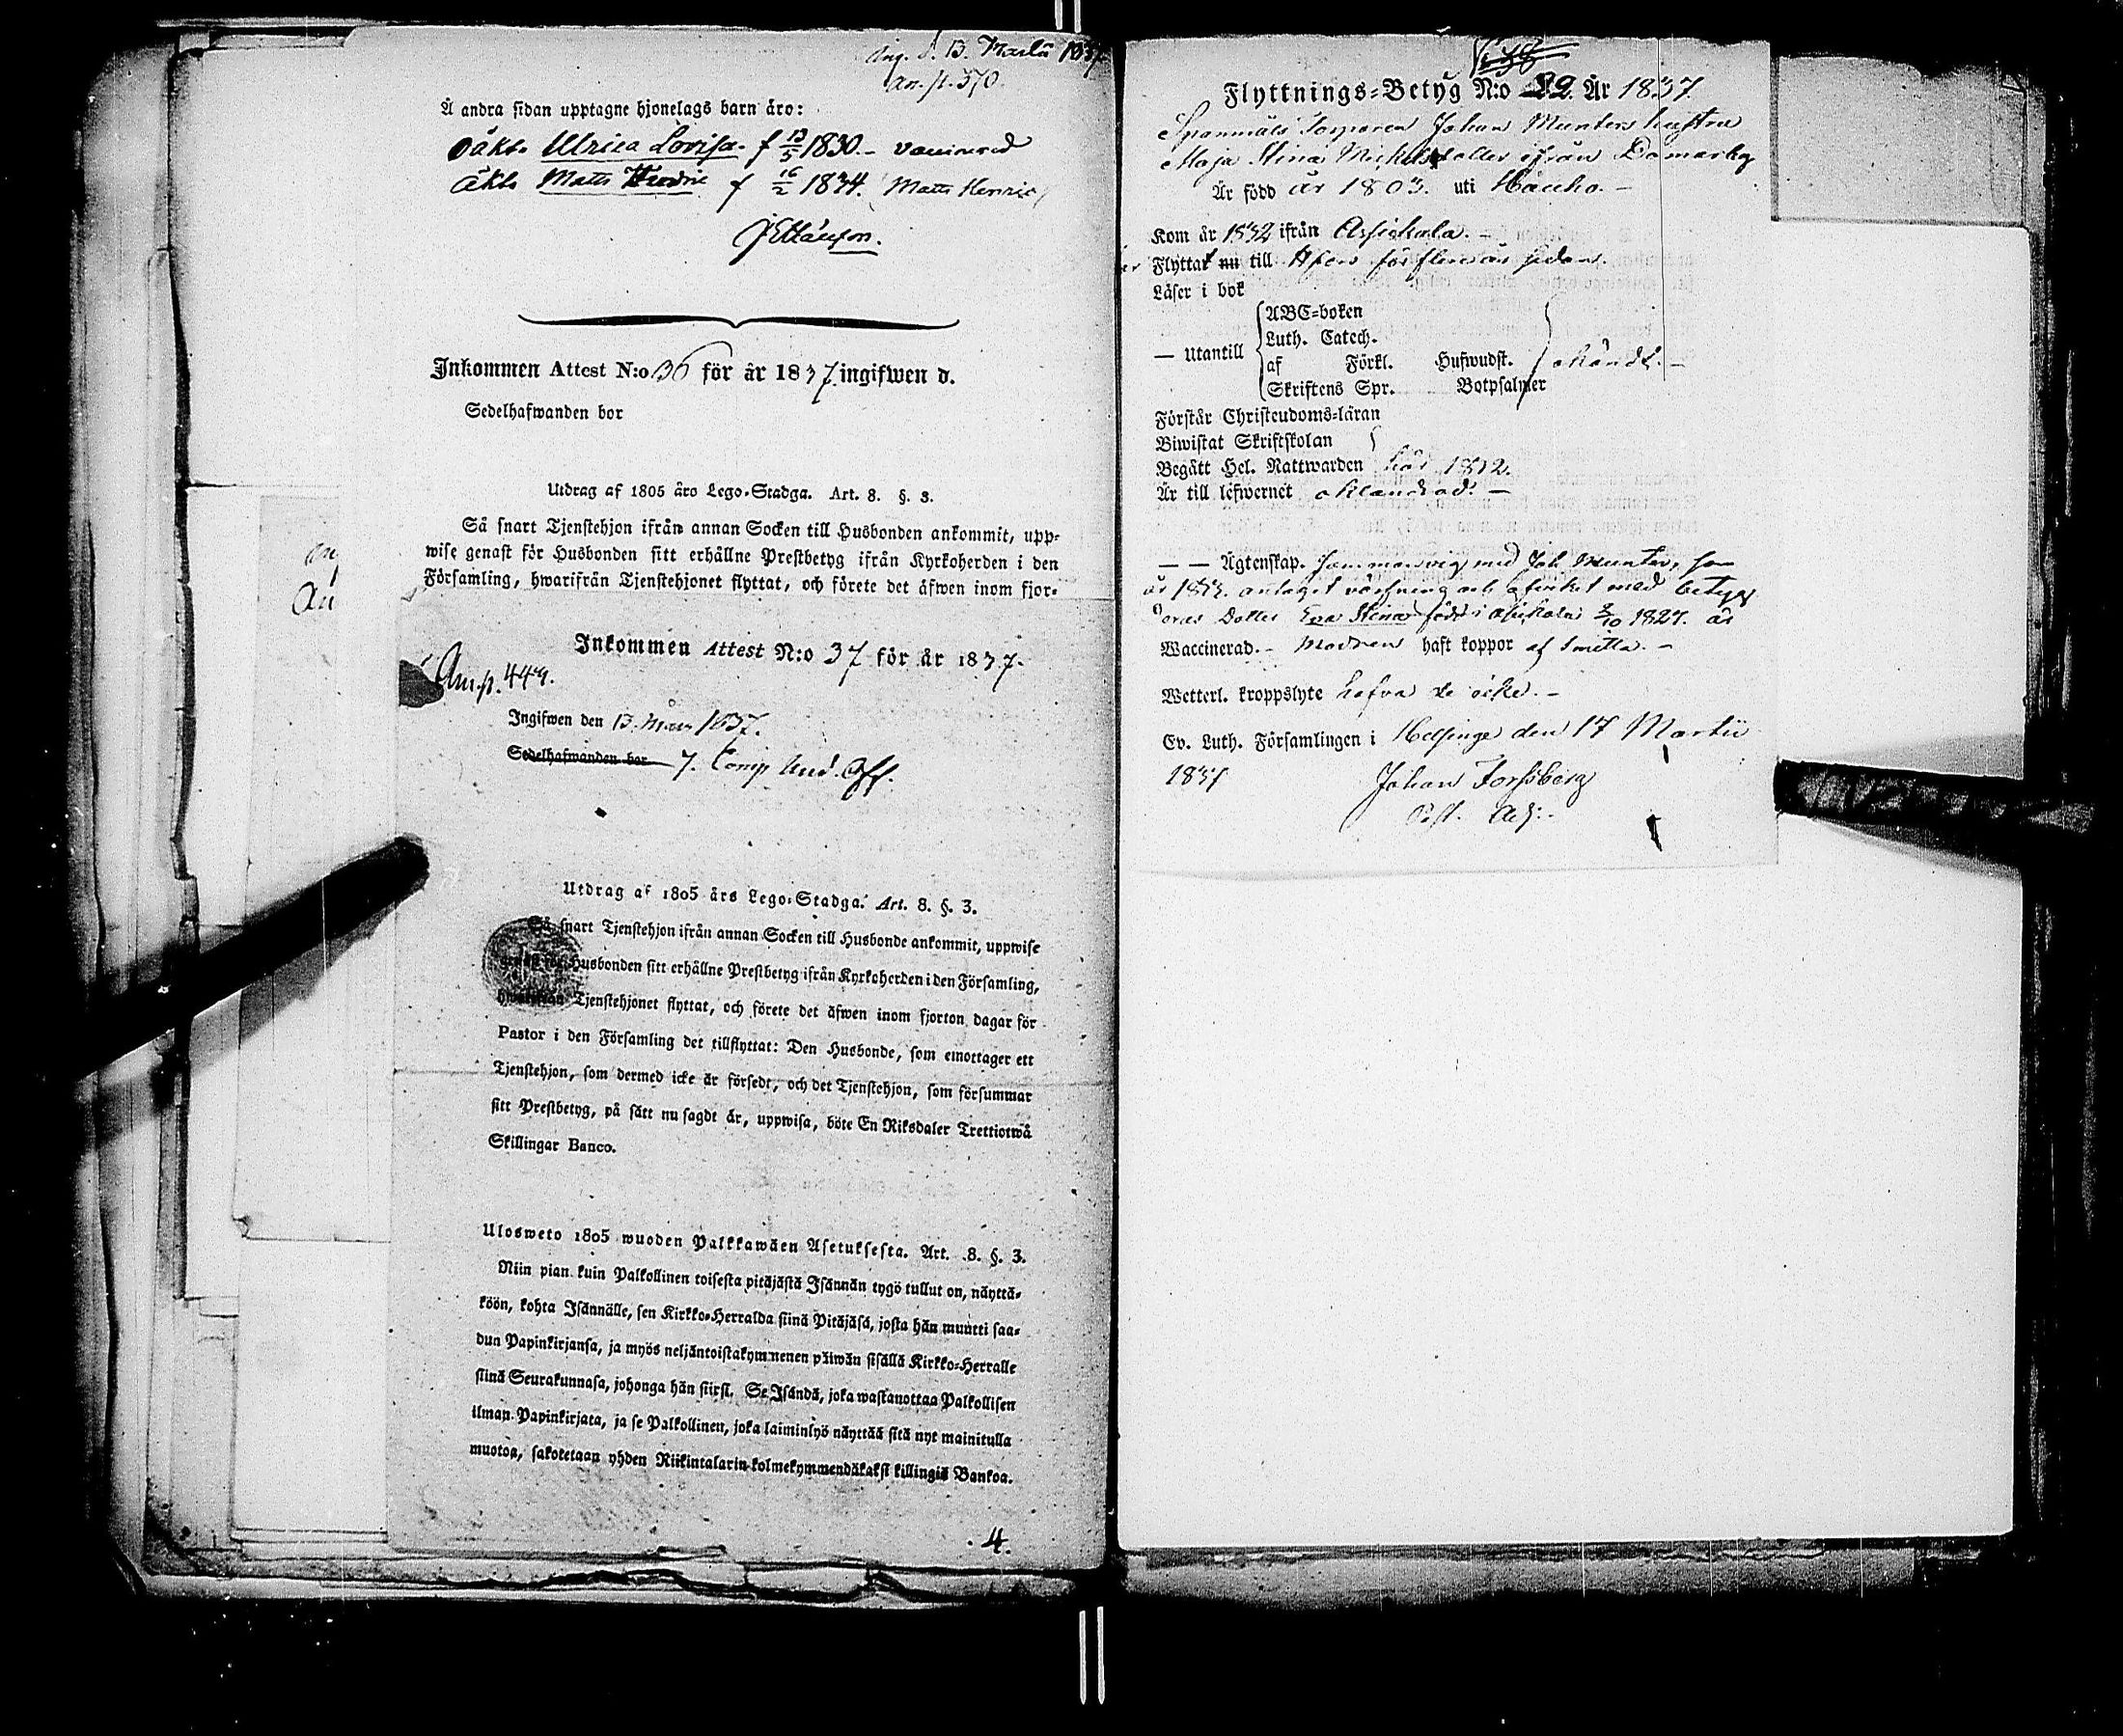 Ing. d. 13 Martii 1837
An. p. 370.
Å andra sidan upptagne hjonelags barn äro:
Oäkt. Ulrica Lovisa f 13/5 1830. – vaccinerad
Äkta Matts Henric f 16/2 1834. (Matts Henric)
Inkommen Attest N:o 36 för år 1837 ingifwen d.
Sedelhafwanden bor
Utdrag af 1805 års Lego-Stadga. Art. 8. §. 3.
Så snart Tjenstehjon ifrån annan Socken till Husbonden ankommit, upp-
wise genast för Husbonden sitt erhållne Prestbetyg ifrån Kyrkoherden i den
Församling, hwarifrån Tjenstehjonet flyttat, och förete det äfwen inom fjor-
Inkommen Attest N:o 37 för år 1837.
An. p. 449.
Ingifwen den 13. Mars 1837.
Sedelhafwanden bor 7. Comp. Und. Off.
Utdrag af 1805 års Lego-Stadga. Art. 8. §. 3.
Så snart Tjenstehjon ifrån annan Socken till Husbonde ankommit, uppwise
genast för Husbonden sitt erhållne Prestbetyg ifrån Kyrkoherden i den Församling,
hwarifrån Tjenstehjonet flyttat, och förete det äfwen inom fjorton dagar för
Pastor i den Församling det tillflyttat: Den Husbonde, som emottager ett
Tjenstehjon, som dermed icke är försedt, och det Tjenstehjon, som försummar
sitt Prestbetyg, på sätt nu sagdt är, uppwisa, böte En Riksdaler Trettiotwå
Skillingar Banco.
Ulosweto 1805 wuoden Palkkawäen Asetuksesta. Art. 8. §. 3.
Niin pian kuin Palkollinen toisesta pitäjästä Isännän tygö tullut on, näyttä-
köön, kohta Isännälle, sen Kirkko-Herralda siinä Pitäjäsä, josta hän muutti saa-
dun Papinkirjansa, ja myös neljäntoistakymmenen päiwän sisällä Kirkko-Herralle
siinä Seurakunnasa, johonga hän siirsi. Se Isändä, joka wastanottaa Palkollisen
ilman Papinkirjata, ja se Palkollinen, joka laiminlyö näyttää sitä nyt mainitulla
muotoa, sakotetaan yhden Riikintalarin kolmekymmendäkaksi killingiä Bankoa.
4.
Flyttnings-Betyg N:o 22. År 1837.
Johan Munters hustru
Maja Stina ifrån Domarby
Är född år 1803. uti Hauho. –
Kom år 1832 ifrån Assikala. –
Flyttat nu till Hfors för flera år sedan.
Läser i bok
— Utantill
ABC-boken
Luth. Catech.
af Förkl. Hufwudst.
Skriftens Spr. Botpsalmer
okändt. –
Förstår Christendoms-läran
Biwistat Skriftskolan
Begått Hel. Nattwarden här 1832.
Är till lefwernet oklandrad. –
— — Ägtenskap. sammanvigd med Joh. Munter, som
år 1833. antagit värfning och afviket med betyg
Dotter Eva Stina född i Asikala 2/10 1827. är
Waccinerad. – Modren haft koppor af smitta. –
Wetterl. kroppslyte hafva de icke. –
Ev. Luth. Församlingen i Helsinge den 17 Martii
1837
Johan Forssberg
Past. Adj.